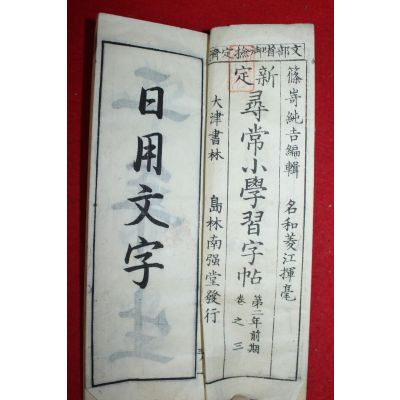 文部省御検定済
篠嵜純吉編輯 名和菱江揮毫
新定 尋常小學習字帖 第二年前期 卷之三
大津書林 島林南强堂發行
日用文字